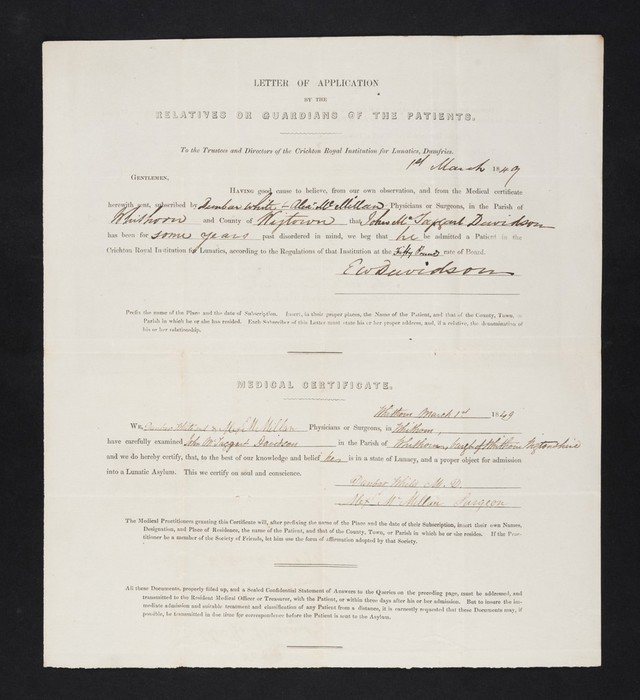 LETTER OF APPLICATION
BY THE
RELATIVES OR GUARDIANS OF THE PATIENTS.
To the Trustees and Directors of the Crichton Royal Institution for Lunatics, Dumfries.
1st March 1849
GENTLEMEN,
HAVING good cause to believe, from our own observation, and from the Medical certificate
herewith sent, subscribed by Dunbar White & Alexr McMillan Physicians or Surgeons, in the Parish of
Whithorn and County of Wigtown that John McTaggart Davidson
has been for some years past disordered in mind, we beg that he be admitted a Patient in the
Crichton Royal Institution for Lunatics, according to the Regulations of that Institution at the Fifty Pound rate of Board.
E W Davidson
Prefix the name of the Place and the date of Subscription. Insert, in their proper places, the Name of the Patient, and that of the County, Town, or
Parish in which he or she has resided. Each Subscriber of this Letter must state his or her proper address, and, if a relative, the denomination of
his or her relationship.
MEDICAL CERTIFICATE.
Whithorn March 1st 1849
WE, Dunbar White & Alexr McMillan Physicians or Surgeons, in Whithorn,
have carefully examined John McTaggart Davidson in the Parish of Whithorn, Whithorn Wigtonshire
and we do hereby certify, that, to the best of our knowledge and belief he is in a state of Lunacy, and a proper object for admission
into a Lunatic Asylum. This we certify on soul and conscience.
Dunbar White M.D.
Alexr McMillan Surgeon
The Medical Practitioners granting this Certificate will, after prefixing the name of the Place and the date of their Subscription, insert their own Names,
Designation, and Place of Residence, the name of the Patient, and that of the County, Town, or Parish in which he or she resides. If the Practitioner
be a member of the Society of Friends, let him use the form of affirmation adopted by that Society.
All these Documents, properly filled up, and a Sealed Confidential Statement of Answers to the Queries on the preceding page, must be addressed, and
transmitted to the Resident Medical Officer or Treasurer, with the Patient, or within three days after his or her admission. But to insure the immediate
admission and suitable treatment and classification of any Patient from a distance, it is earnestly requested that these Documents may, if
possible, be transmitted in due time for correspondence before the Patient is sent to the Asylum.